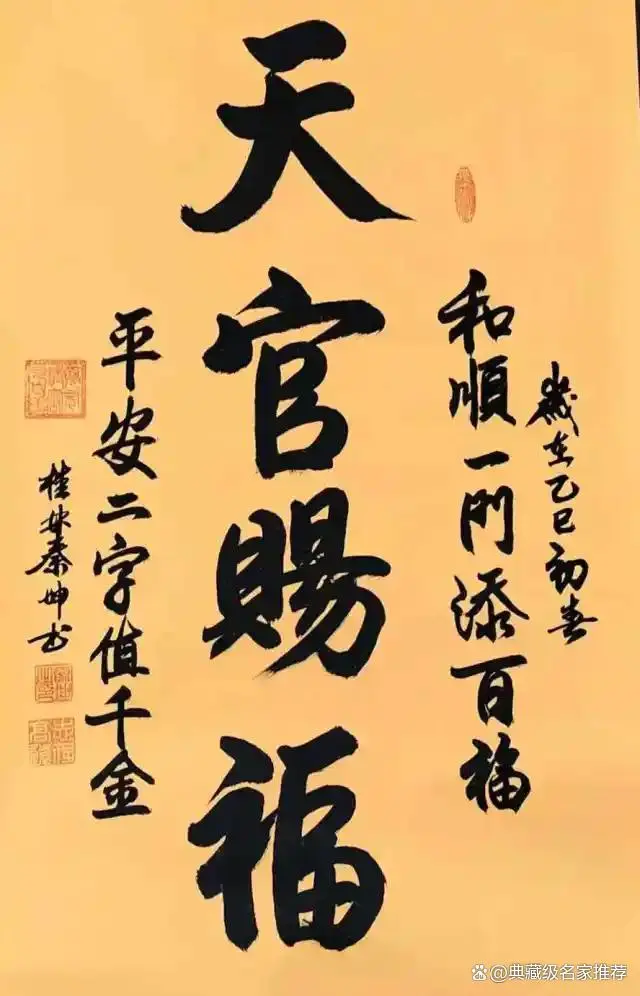 歲在乙巳初春
和順一門添百福
天官賜福
平安二字值千金
桂林秦坤书
@典藏级名家推荐